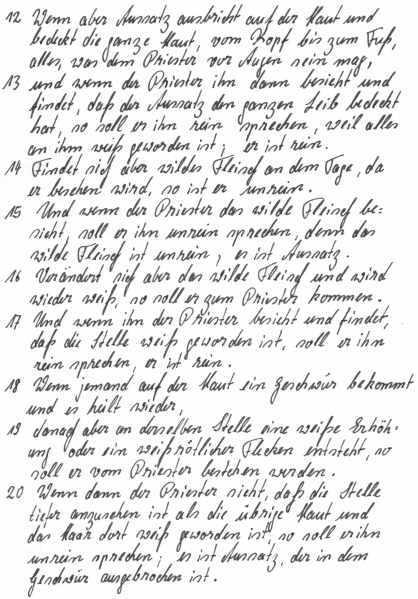 12 Wenn aber Aussatz ausbricht auf der Haut und
bedeckt die ganze Haut, vom Kopf bis zum Fuß,
alles, was dem Priester vor Augen sein mag,
13 und wenn der Priester ihn dann besieht und
findet, daß der Aussatz den ganzen Leib bedeckt
hat, so soll er ihn rein sprechen, weil alles
an ihm weiß geworden ist; er ist rein.
14 Findet sich aber wildes Fleisch an dem Tage, da
er besehen wird, so ist er unrein.
15 Und wenn der Priester das wilde Fleisch be=
sieht, soll er ihn unrein sprechen, denn das
wilde Fleisch ist unrein; es ist Aussatz.
16 Verändert sich aber das wilde Fleisch und wird
wieder weiß, so soll er zum Priester kommen.
17 Und wenn ihn der Priester besieht und findet,
daß die Stelle weiß geworden ist, soll er ihn
rein sprechen, er ist rein.
18 Wenn jemand auf der Haut ein Geschwür bekommt
und es heilt wieder,
19 danach aber an derselben Stelle eine weiße Erhöh-
ung oder ein weißrötlicher Flecken entsteht, so
soll er vom Priester besehen werden.
20 Wenn dann der Priester sieht, daß die Stelle
tiefer anzusehen ist als die übrige Haut und
das Haar dort weiß geworden ist, so soll er ihn
unrein sprechen; es ist Aussatz, der in dem
Geschwür ausgebrochen ist.